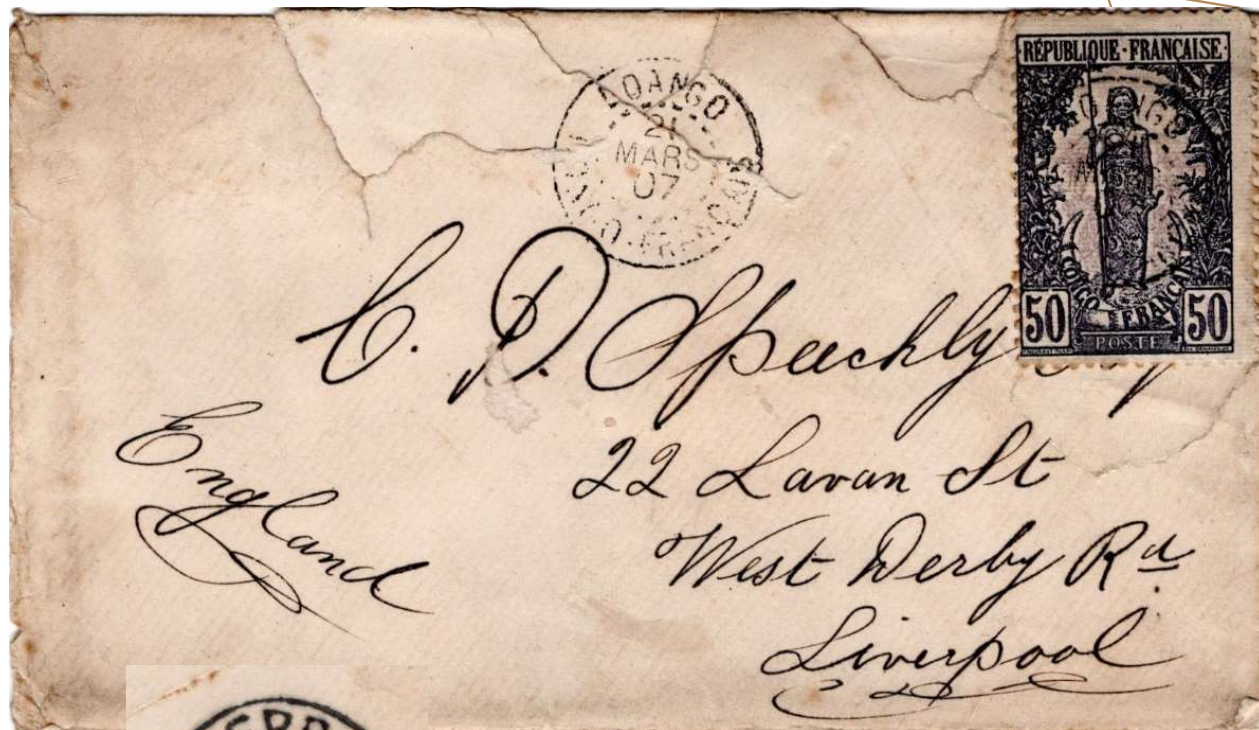 LOANGO
21
MARS
07
CONGO-FRANÇAIS
RÉPUBLIQUE·FRANÇAISE
CONGO FRANÇAIS
50 50
POSTE
C. D. Speechly
22 Lavan St
West Derby Rd
Liverpool
England